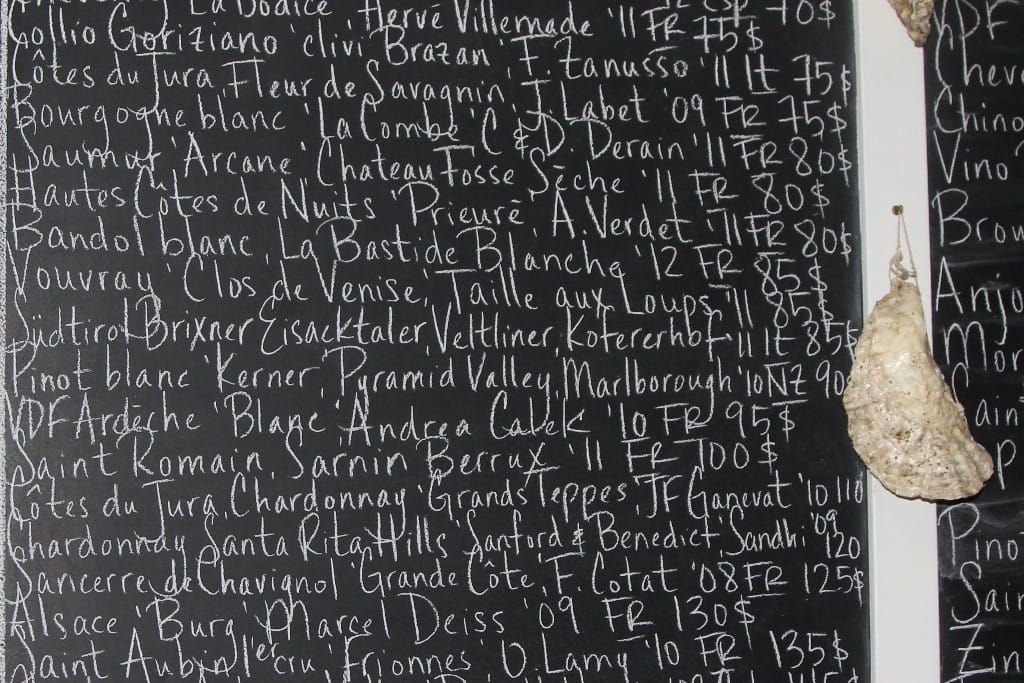 La Bodice Hervé Villemade '11 FR 70$
Collio Goriziano 'clivi Brazan' F. Zanusso '11 It 75$
Côtes du Jura, Fleur de Savagnin, J. Labet '09 FR 75$
Bourgogne blanc 'La Combe' C & D. Derain '11 FR 80$
Saumur 'Arcane' Chateau Fosse Sèche '11 FR 80$
Hautes Côtes de Nuits 'Prieuré' A. Verdet '11 FR 80$
Bandol blanc, La Bastide Blanche '12 FR 85$
Vouvray 'Clos de Venise', Taille aux Loups, '11 85$
Südtirol Brixner Eisacktaler, Veltliner, Kofererhof '11 It 85$
Pinot blanc 'Kerner', Pyramid Valley, Marlborough '10 NZ 90
VDF Ardèche 'Blanc' Andrea Calek '10 FR 95$
Saint Romain, Sarnin Berrux '11 FR 100$
Côtes du Jura, Chardonnay 'Grands Teppes' JF Ganevat '10 110
Chardonnay Santa Rita Hills 'Sanford & Benedict' Sandhi '09 120
Sancerre de Chavignol 'Grande Côte', F. Cotat '08 FR 125$
Alsace 'Burg' Marcel Deiss '09 FR 130$
Saint Aubin 1er cru 'Frionnes' O. Lamy '10 FR 135$
VDF
Chino
Vino
Brou
Anjo
Mor
Pino
Sain
Zin